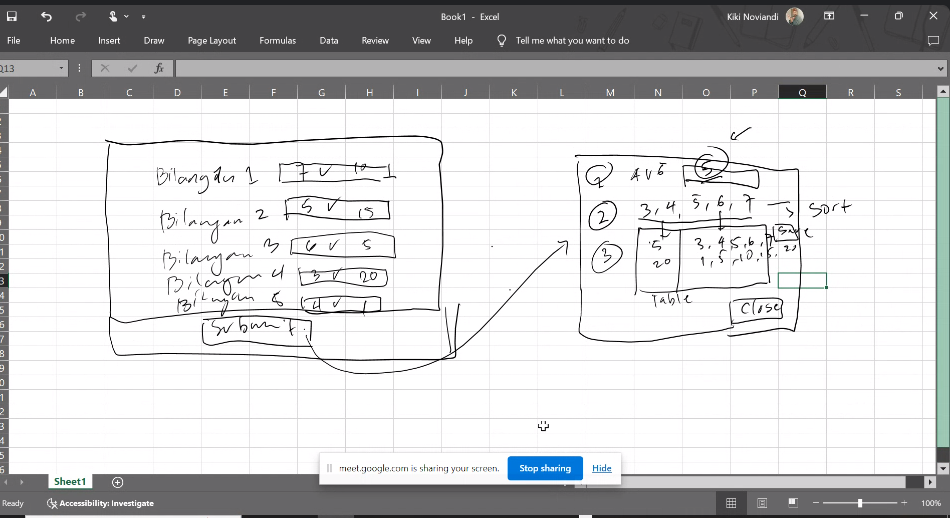 Book1 - Excel
Kiki Noviandi
File Home Insert Draw Page Layout Formulas Data Review View Help Tell me what you want to do
Q13
fx
A B C D E F G H I J K L M N O P Q R S
Bilangan 1 7 v 10
Bilangan 2 5 v 15
Bilangan 3 6 v 5
Bilangan 4 3 v 20
Bilangan 5 4 v 1
Submit
1 AVG 5
2 3, 4, 5, 6, 7 → Sort
Save
3 5 3, 4, 5, 6, 7
20 1, 5, 10, 15, 20
Table
Close
meet.google.com is sharing your screen. Stop sharing Hide
Sheet1
Ready Accessibility: Investigate 100%